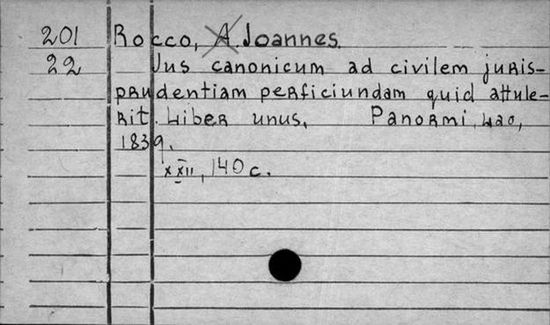 201 Rocco, A. Joannes.
22 Jus canonicum ad civilem juris-
prudentiam perficiundam quid attule-
rit. Liber unus. Panormi, Lao,
1839.
XXII, 140 c.